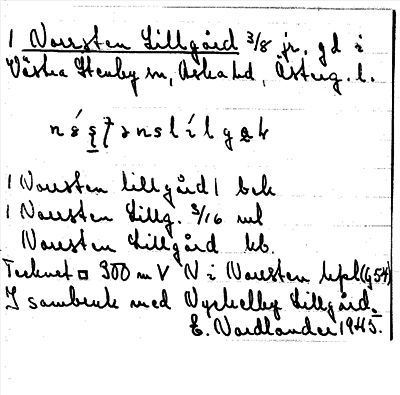 1 Norrsten Lillgård 3/8 jr. gd i
Västra Stenby sn, Aska hd, Österg. l.
1 Norrsten lillgård 1 bek
1 Norrsten Lillg. 3/16 ml
Norrsten Lillgård kb.
Tecknet □ 300 m V N i Norrsten kpl (G 54)
I sambruk med Nyckelby Lillgård.
E. Nordlander 1945.